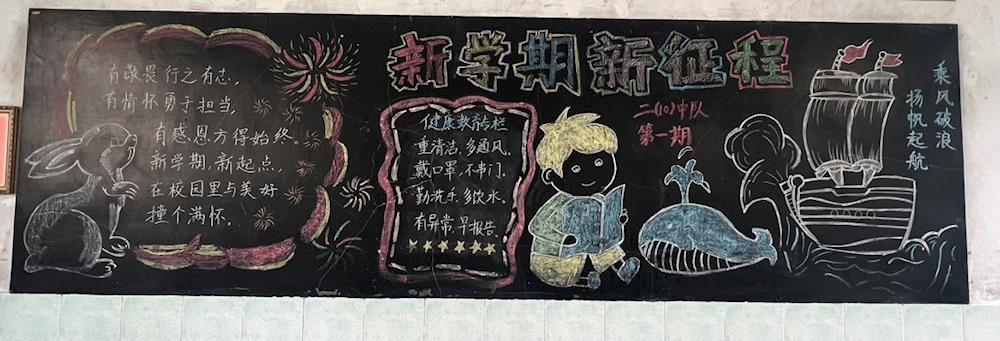 新学期新征程
有敬畏行之有志，
有情怀勇于担当，
有感恩方得始终。
新学期，新起点，
在校园里与美好
撞个满怀。
健康教育专栏
重清洁，多通风。
戴口罩，不串门。
勤洗手，多饮水。
有异常，早报告。
二(10)中队
第一期
乘风破浪
扬帆起航